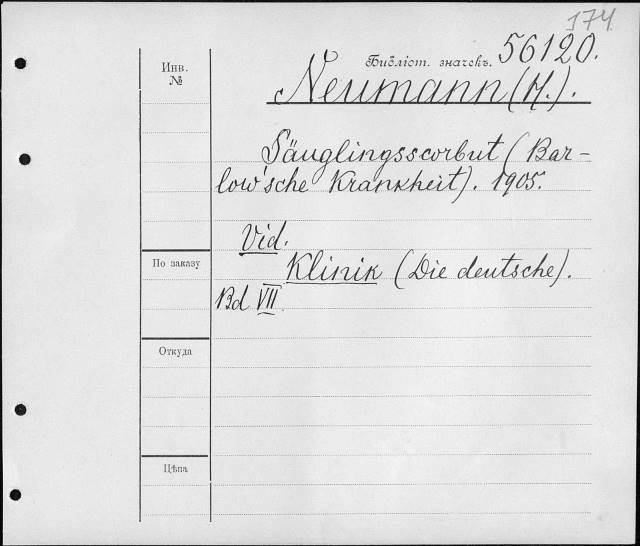 174
Инв. №
Библіот. значекъ. 56120.
Neumann (H.).
Säuglingsscorbut (Bar-
low'sche Krankheit). 1905.
Vid.
Klinik (Die deutsche).
Bd VII
По заказу
Откуда
Цѣна